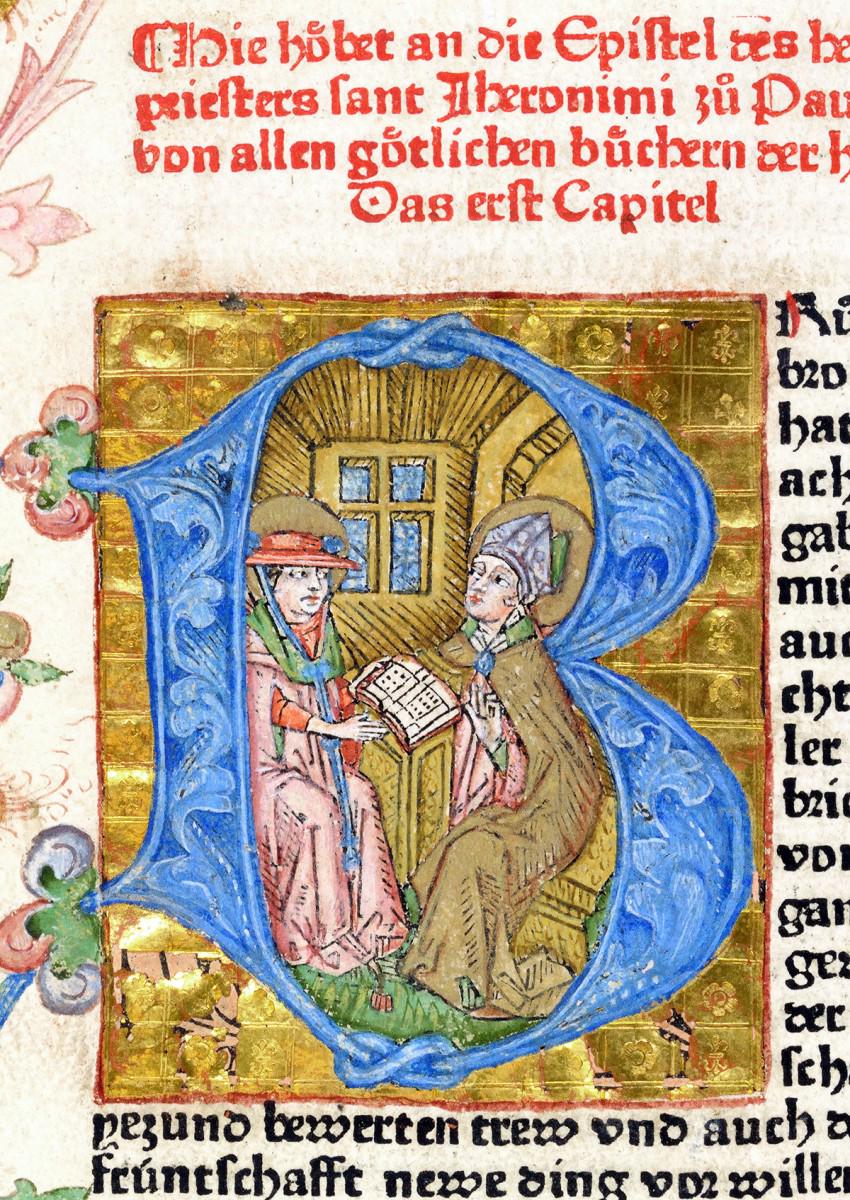 Hie hoͤbet an die Epistel des he
priesters sant Jheronimi zuͦ Pau
von allen goͤtlichen buͤchern der h
Das erst Capitel
B
Ruͦ
bro
hat
ach
gab
mit
auc
cht
ler
bric
von
gan
ger
der
sch
yezund bewerten trew vnd auch d
freüntschafft newe ding vor willen